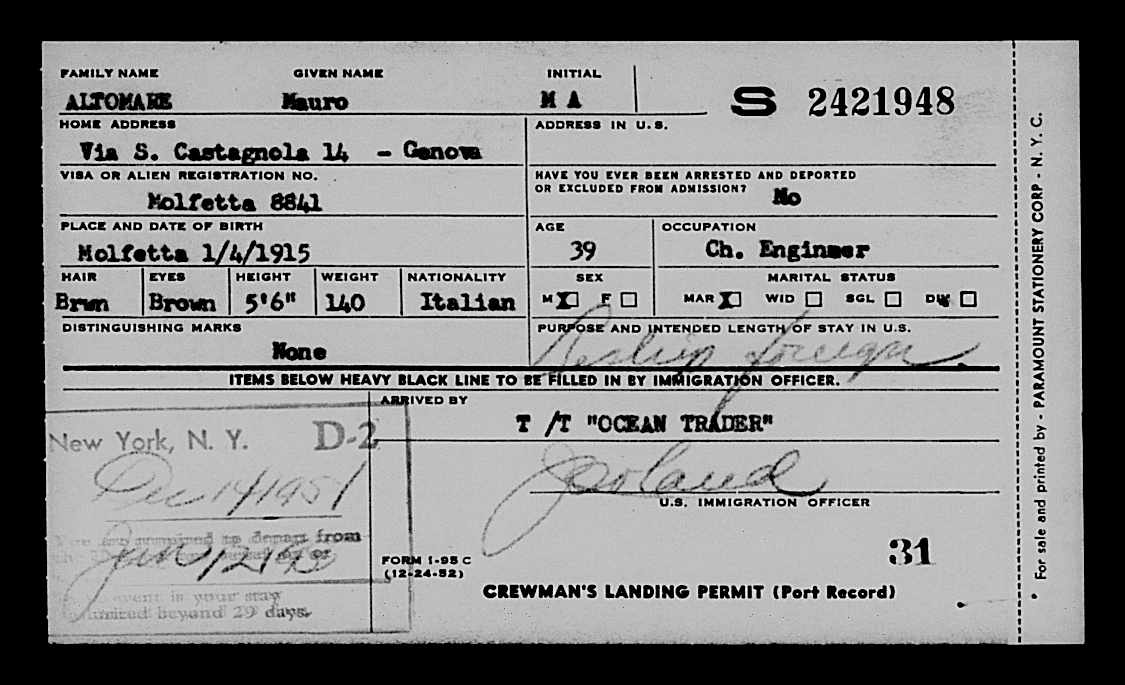 FAMILY NAME GIVEN NAME INITIAL
ALTOMARE Mauro M A
S 2421948
HOME ADDRESS ADDRESS IN U.S.
Via S. Castagnola 14 - Genova
VISA OR ALIEN REGISTRATION NO. HAVE YOU EVER BEEN ARRESTED AND DEPORTED
OR EXCLUDED FROM ADMISSION?
Molfetta 8841 No
PLACE AND DATE OF BIRTH AGE OCCUPATION
Molfetta 1/4/1915 39 Ch. Engineer
HAIR EYES HEIGHT WEIGHT NATIONALITY SEX MARITAL STATUS
Brwn Brown 5'6" 140 Italian M X F MAR X WID SGL DIV
DISTINGUISHING MARKS PURPOSE AND INTENDED LENGTH OF STAY IN U.S.
None Reship foreign
ITEMS BELOW HEAVY BLACK LINE TO BE FILLED IN BY IMMIGRATION OFFICER.
ARRIVED BY
T/T "OCEAN TRADER"
New York, N. Y. D-2
Dec 14 195
U.S. IMMIGRATION OFFICER
depart from
or
Jan 12
event is your stay
beyond 29 days.
31
FORM I-95 C
(12-24-52)
CREWMAN'S LANDING PERMIT (Port Record)
For sale and printed by - PARAMOUNT STATIONERY CORP - N. Y. C.